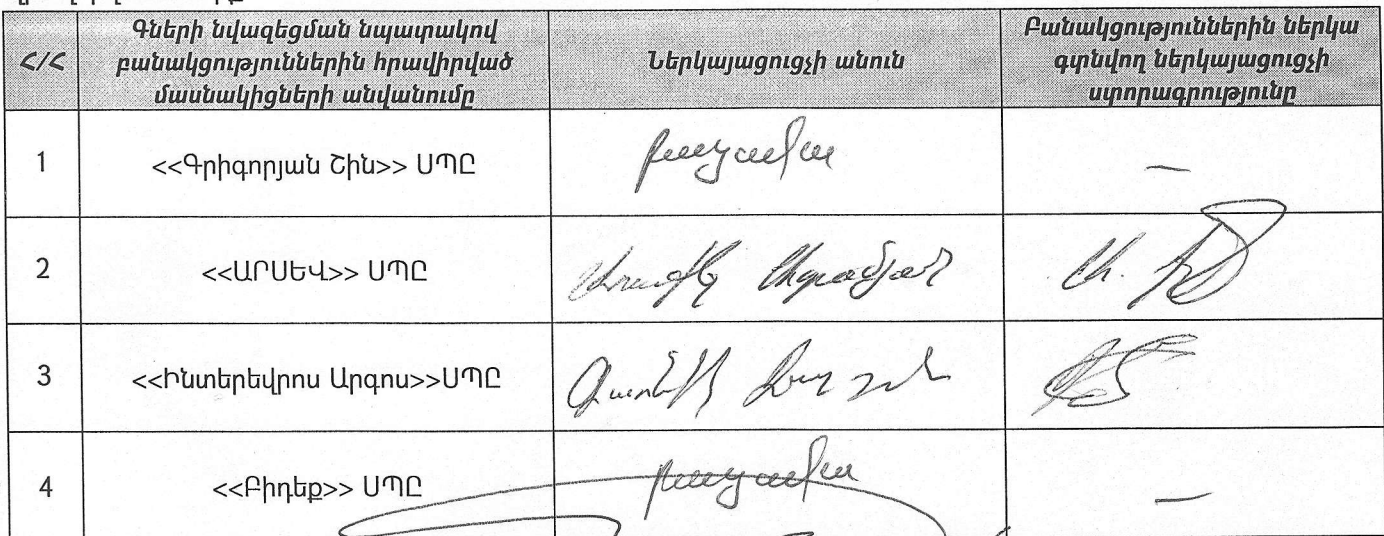 Հ/Հ
Գների նվազեցման նպատակով
բանակցություններին հրավիրված
մասնակիցների անվանումը
Ներկայացուցչի անուն
Բանակցություններին ներկա
գտնվող ներկայացուցչի
ստորագրությունը
1
<<Գրիգորյան Շին>> ՍՊԸ
բացակա
—
2
<<ԱՐՍԵՎ>> ՍՊԸ
3
<<Ինտերեվրոս Արգոս>>ՍՊԸ
4
<<Բիդեք>> ՍՊԸ
բացակա
—